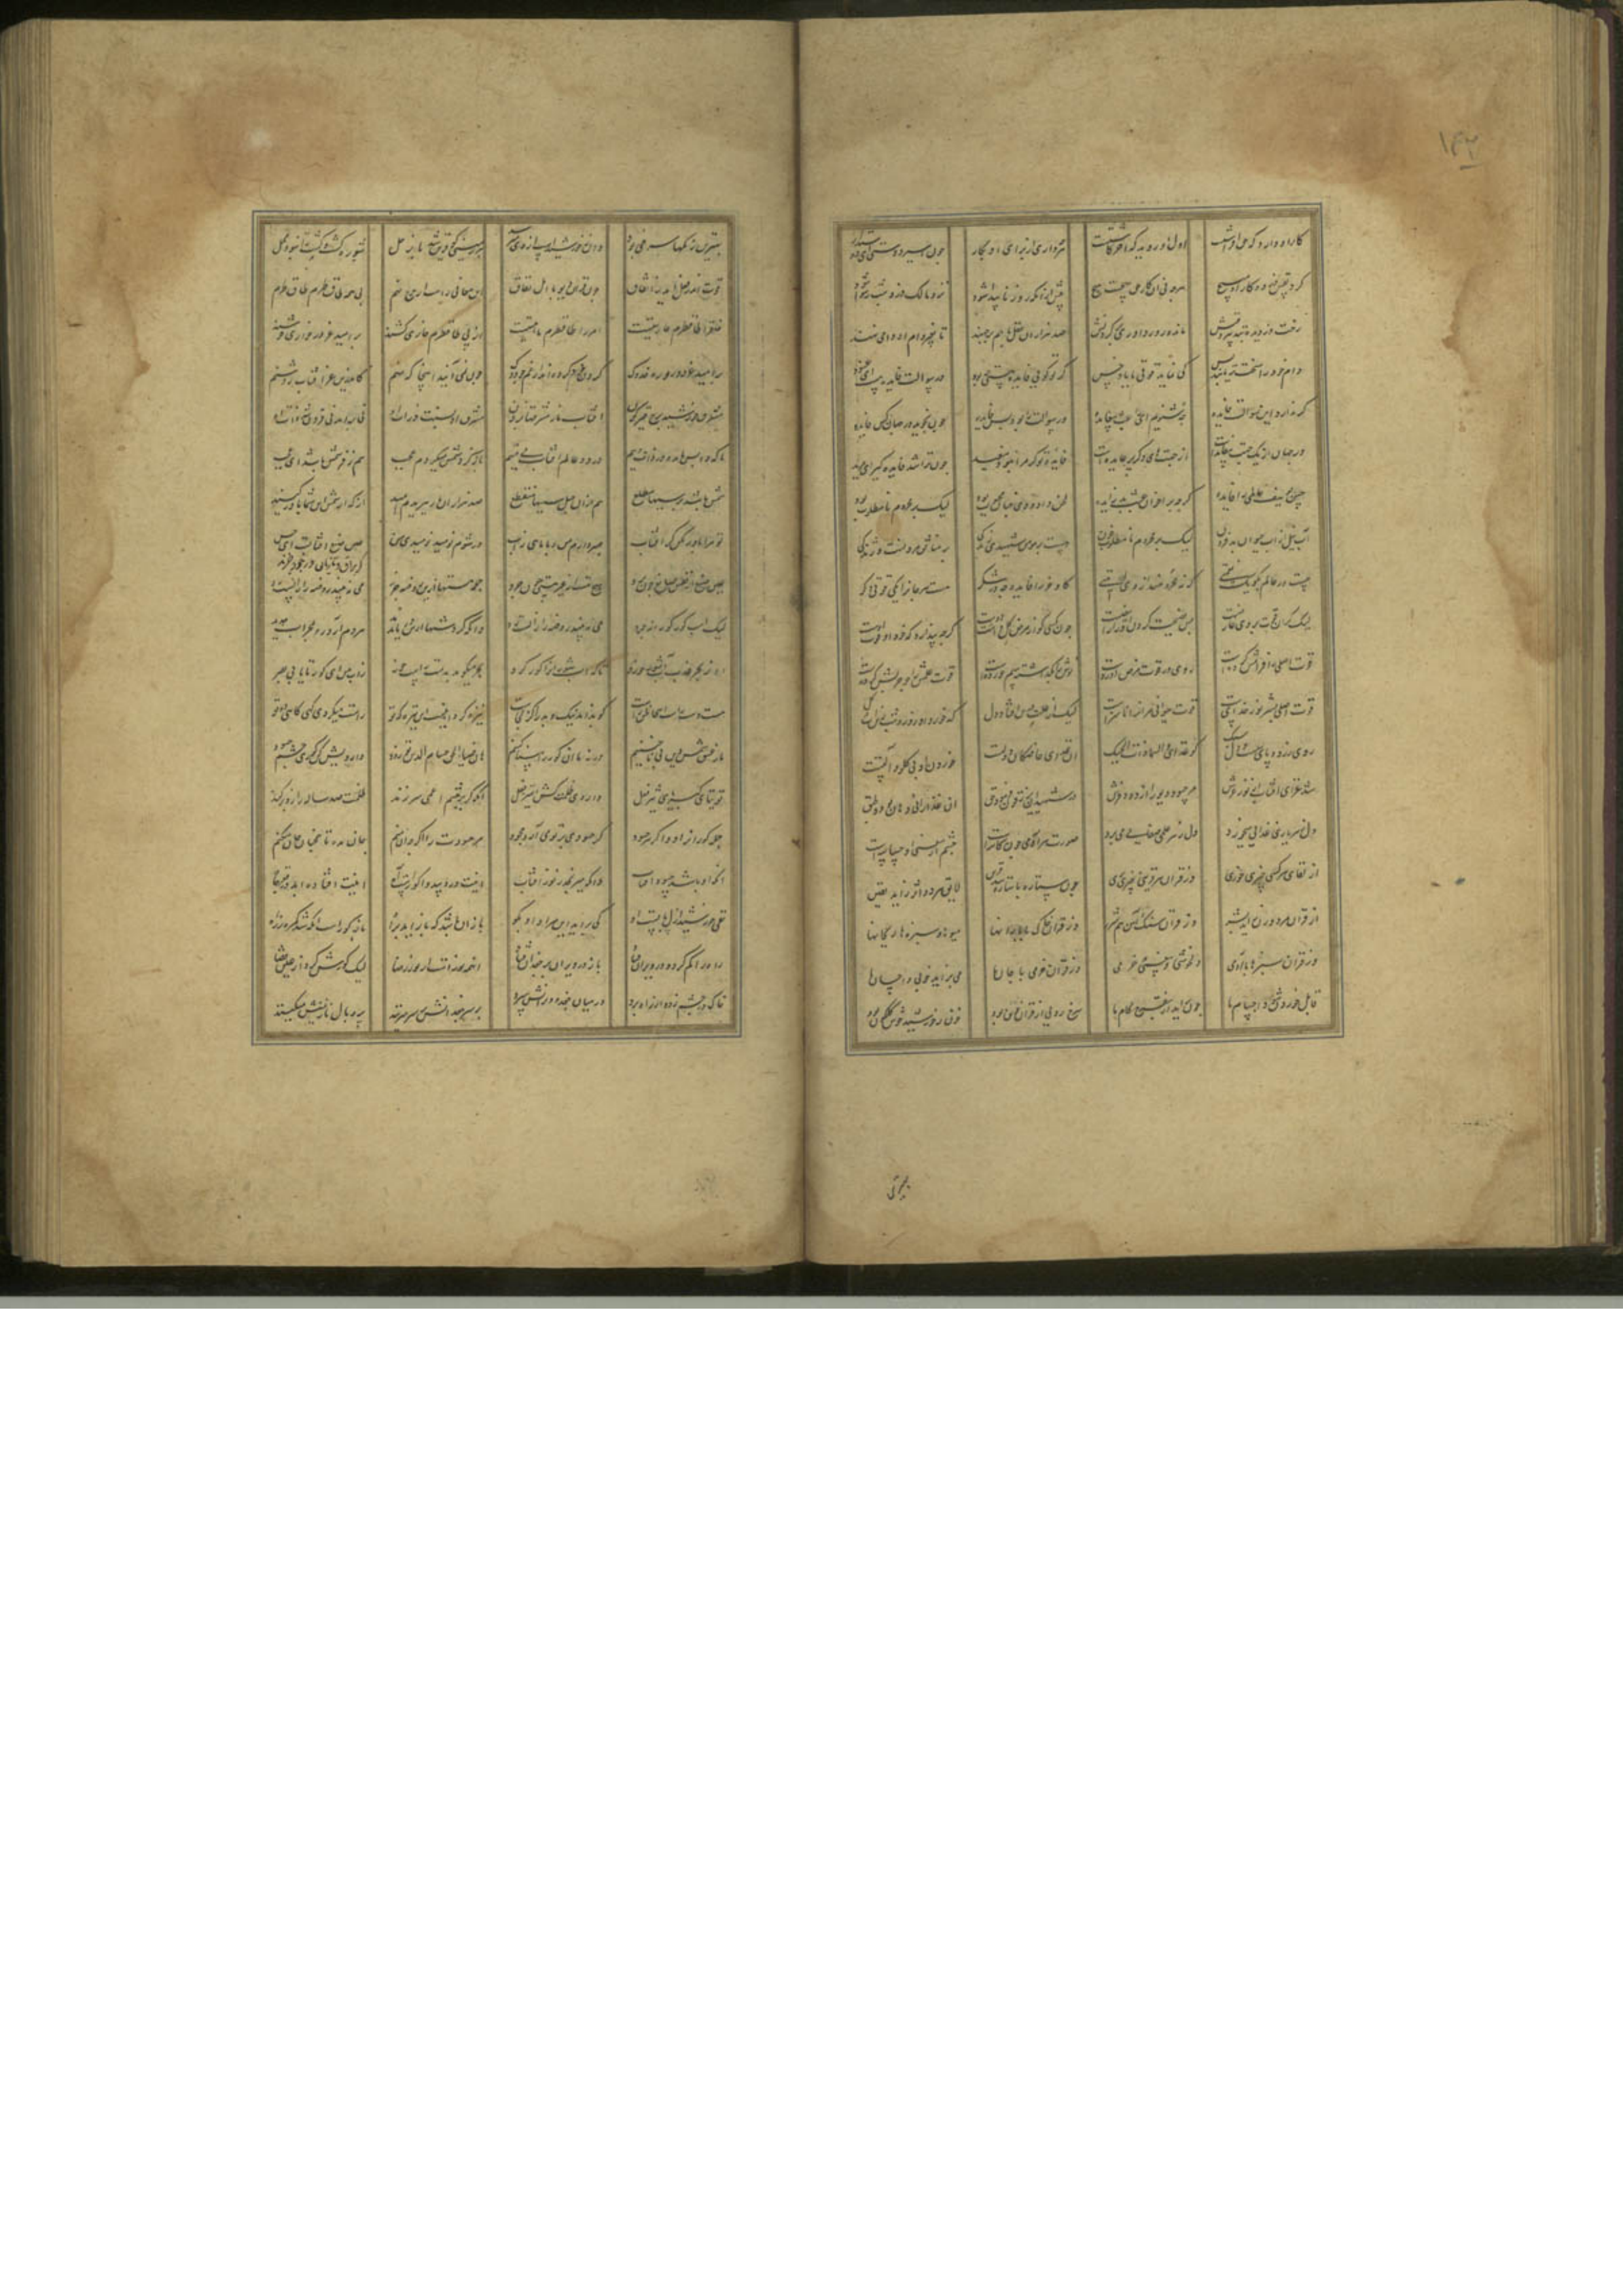 ۱۴۲
کار او دارد که حق افراشت اول او روید که آخر کاشتست هرچه کاری از برای او بکار چون اسیر دوستی ای دوستدار
گرد نفس دزد و کار او مپیچ هرچه نی آن کار حق هیچست هیچ پیش از آنکه روز دین پیدا شود نزد مالک دزد شب رسوا شود
رخت دزدیده بتدبیر و فنش مانده روز داوری بر گردنش صد هزاران عقل با هم برجهند تا بغیر دام او دامی نهند
دام خود را سخت‌تر یابند و بس کی نماید قوتی با باد خس گر تو گویی فایده هستی چه بود در سوالت فایده هست ای عنود
گر ندارد این سوالت فایده چه شنویم این را عبث بی عایده ور سوالت فایده چون نجوید در جهان کس فایده
ور جهان از یک جهت بی فایده است از جهتهای دگر پر عایده است فایده تو گر مرا نبود مفید چون ترا شد فایده گیر ای مرید
حسن یوسف عالمی را فایده گرچه بر اخوان عبث بد زایده لحن داودی چنان محبوب بود لیک بر محروم نامطلوب بود
آب نیل از آب حیوان بد فزون لیک بر محروم خون هست بر مومن شهیدی زندگی بر منافق مردنست و ژندگی
چیست در عالم بگو یک نعمتی که نه محرومند از وی امتی گاو و خر را فایده چه در شکر هست هر جان را یکی قوتی دگر
لیک گر آن قوت بر وی عارضیست پس نصیحت کردن او را رایضیست چون کسی کو از مرض گل داشت دوست گرچه پندارد که خود آن قوت اوست
قوت اصلی را فرامش کرده است روی در قوت مرض آورده است نوش را بگذاشته سم خورده است قوت علت را چو چربش کرده است
قوت اصلی بشر نور خداست قوت حیوانی مر او را ناسزاست لیک از علت درین افتاد دل که خورد او روز و شب زین آب و گل
روی زرد و پای سست و دل سبک کو غذای والسما ذات الحبک آن غذای خاصگان دولت است خوردن او بی گلو و آلتست
شد غذای آفتاب از نور عرش مر حسود و دیو را از دود فرش در شهیدان یرزقون فرمود حق آن غذا را نی دهان بد نی طبق
دل ز هر یاری غذایی میخورد دل ز هر علمی صفایی می برد صورت هر آدمی چون کاسه ایست چشم از معنی او حساسه ایست
از لقای هر کسی چیزی خوری وز قران هر قرین چیزی بری چون ستاره با ستاره شد قرین لایق هر دو اثر زاید یقین
از قران مرد و زن زاید بشر وز قران سنگ و آهن هم شرر وز قران خاک با بارانها میوه‌ها و سبزه‌ها ریحانها
وز قران سبزها با آدمی دلخوشی و بی غمی و خرمی وز قران خرمی با جان ما می بزاید خوبی و احسان ما
قابل خوردن شود اجسام ما چون برآید از تفرج کام ما سرخ رویی از قران خون بود خون ز خورشید خوش گلگون بود
بهترین رنگها سرخی بود وان ز خورشیدست و از وی می رسد هر زمینی کو قرین شد با زحل شوره گشت و کشت را نبود محل
قوت اندر فعل آید ز اتفاق چون قران دیو با اهل نفاق این معانی راست از چرخ نهم بی همه طاق و طرم طاق و طرم
خلق را طاق و طرم عاریتست امر را طاق و طرم ماهیتست از پی طاق و طرم خواری کشند بر امید عز در خواری خوشند
بر امید عز ده روزه خدوک گردن خود کرده اند از غم چو دوک چون نمی آیند اینجا که منم کاندرین عز آفتاب روشنم
مشرق خورشید برج قیرگون آفتاب ما ز مشرقها برون مشرق او نسبت ذرات او نی برآمد نی فرو شد ذات او
ما که واپس مانده ذرات وییم در دو عالم آفتاب بی فییم باز گرد شمس میگردم عجب هم ز فر شمس باشد این سبب
شمس باشد بر سببها مطلع هم از آن حبل سببها منقطع صد هزاران بار ببریدم امید از که از شمس این شما باور کنید
تو مرا باور مکن کز آفتاب صبر دارم من و یا ماهی ز آب ور شوم نومید نومیدی من عین صنع آفتابست ای حسن
عین صنع از نفس صانع چون برد هیچ هست از غیر هستی چون چرد جمله هستیها ازین روضه چرند گر براق و تازیان ور خود خرند
لیک اسب کور کورانه چرد می نبیند روضه را زانست رد وانکه گردشها ازین دریا ندید هر دم آرد رو بمحرابی جدید
او ز بحر عذب آب شور خورد تا که آب شور او را کور کرد بحر میگوید بدست راست خور ز آب من ای کور تا یابی بصر
هست دست راست اینجا ظن راست کو بداند نیک و بد را کز کجاست نیزه گردانیست ای نیزه که تو راست میگردی گهی گاهی دوتو
ما ز عشق شمس دین بی ناخنیم ورنه ما آن کور را بینا کنیم هان ضیاء الحق حسام الدین تو زود دارویش کن کوری چشم حسود
توتیای کبریای تیزفعل داروی ظلمت کش استیزفعل آنکه گر بر چشم اعمی برزند ظلمت صد ساله را زو برکند
جمله کوران را دوا کن جز حسود کز حسودی بر تو می آرد جحود مر حسودت را اگر چه آن منم جان مده تا همچنان جان میکنم
آنکه او باشد حسود آفتاب وانکه میرنجد ز نور آفتاب اینت درد بی دوا کوراست آه اینت افتاده ابد در قعر چاه
نفی خورشید ازل بایست او کی برآید این مراد او بگو باز آن باشد که باز آید بشاه باز کورست آنکه شد گم کرده راه
راه را گم کرد و در ویران فتاد باز در ویران بر جغدان فتاد او همه نورست از نور رضا لیک کورش کرد
خاک در چشمش زد و از راه برد در میان جغد و ویرانش سپرد بر سر جغدانش بر سر میزنند پر و بال نازنینش میکنند
بهترین